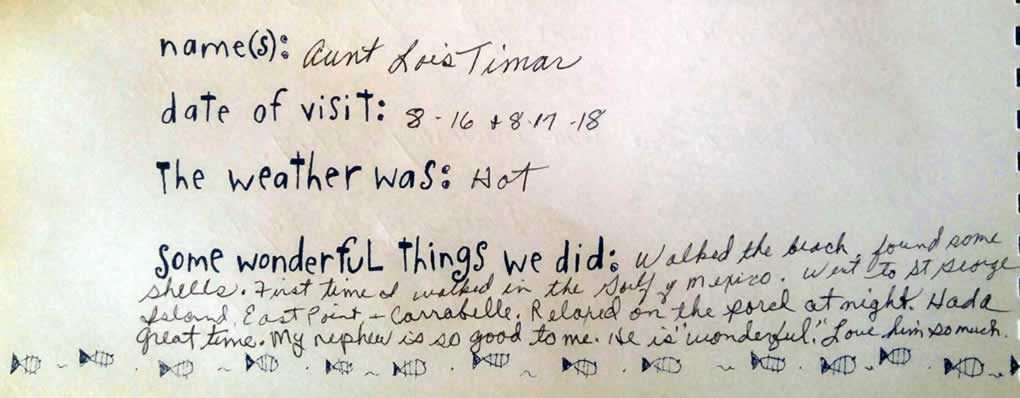 name(s): Aunt Lois Timar
date of visit: 8-16 + 8-17-18
The weather was: Hot
some wonderful things we did: Walked the beach, found some
shells. First time I walked in the Golf of Mexico. Went to St George
Island, East Point + Carrabelle. Relaxed on the porch at night. Had a
great time. My nephew is so good to me. He is "wonderful." Love him so much.